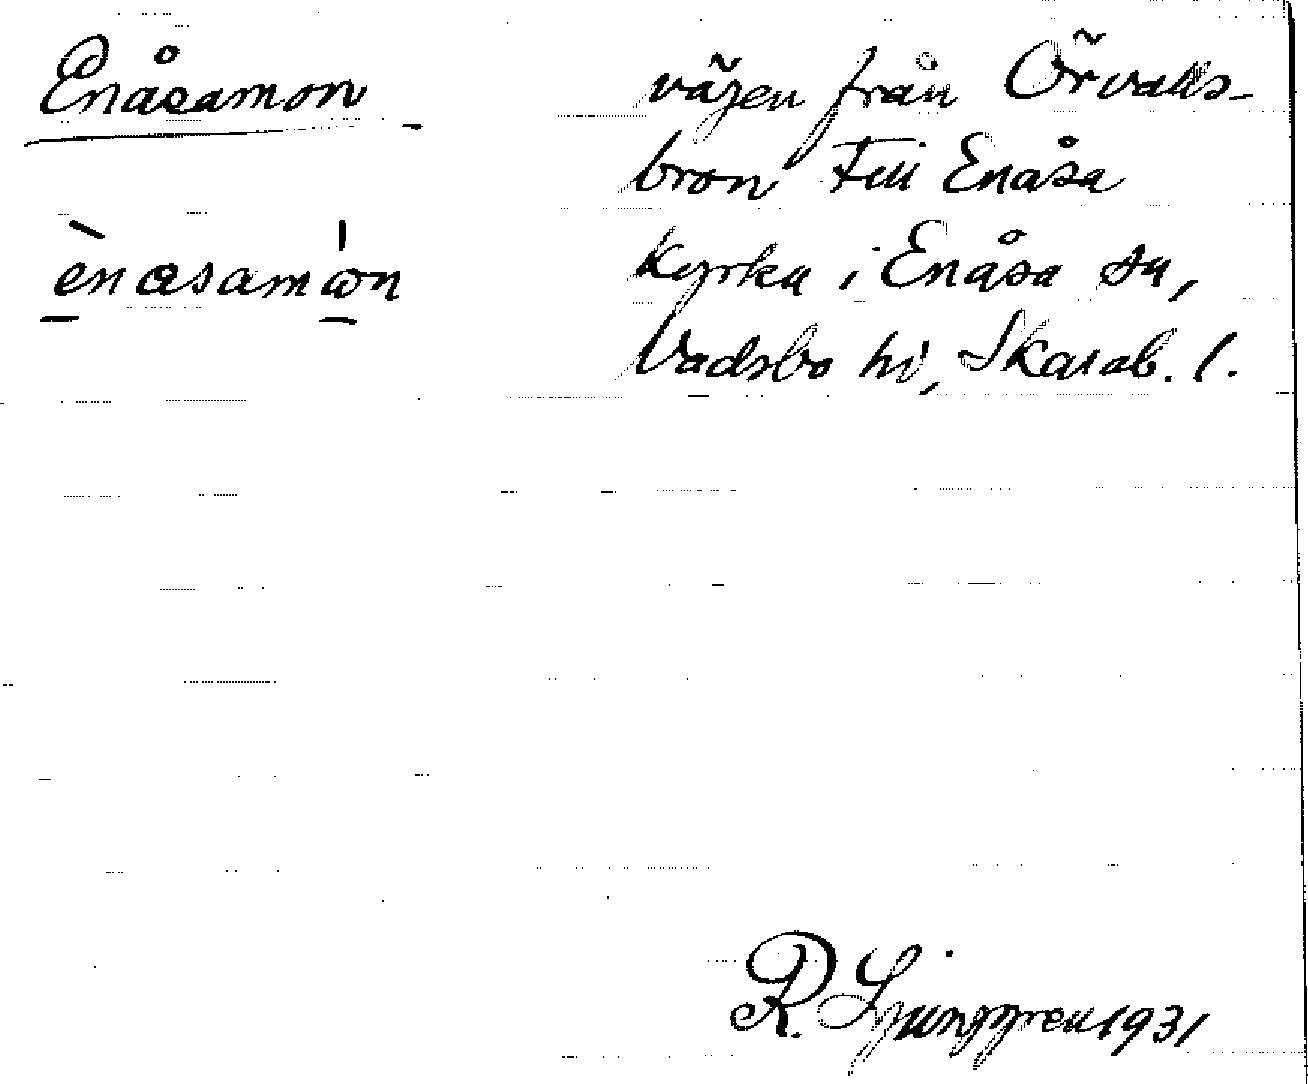 Enåsamon
enasamon
vägen från Örvalls-
bron till Enåsa
kyrka i Enåsa sn,
Vadsbo hd, Skarab. l.
R. Ljunggren 1931